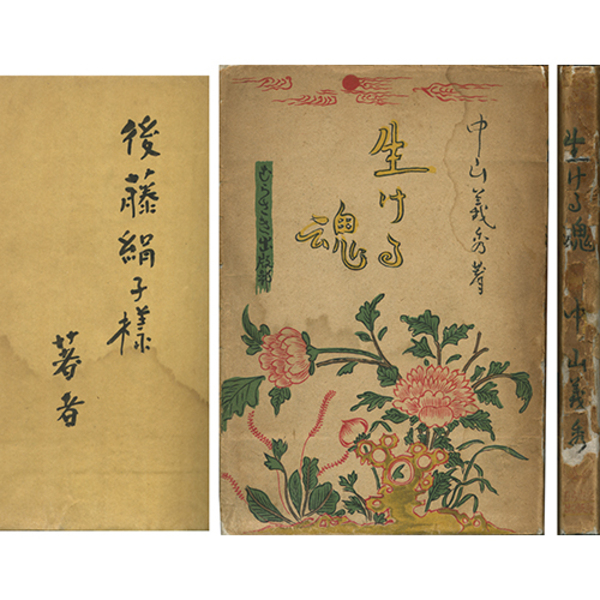 後藤絹子様
著者
中山義秀著
生ける
魂
むらさき出版部
生ける魂 中山義秀